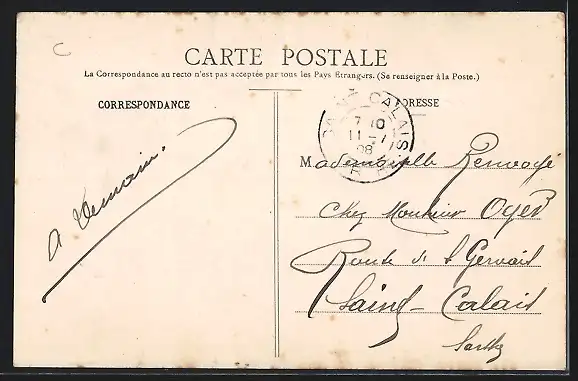 C
CARTE POSTALE
La Correspondance au recto n'est pas acceptée par tous les Pays Etrangers. (Se renseigner à la Poste.)
CORRESPONDANCE
ADRESSE
SAINT CALAIS
7 10
11 - 7
08
A demain.
Mademoiselle Renvoyé
Chez Monsieur Oger
Route de St Gervais
Saint-Calais
Sarthe